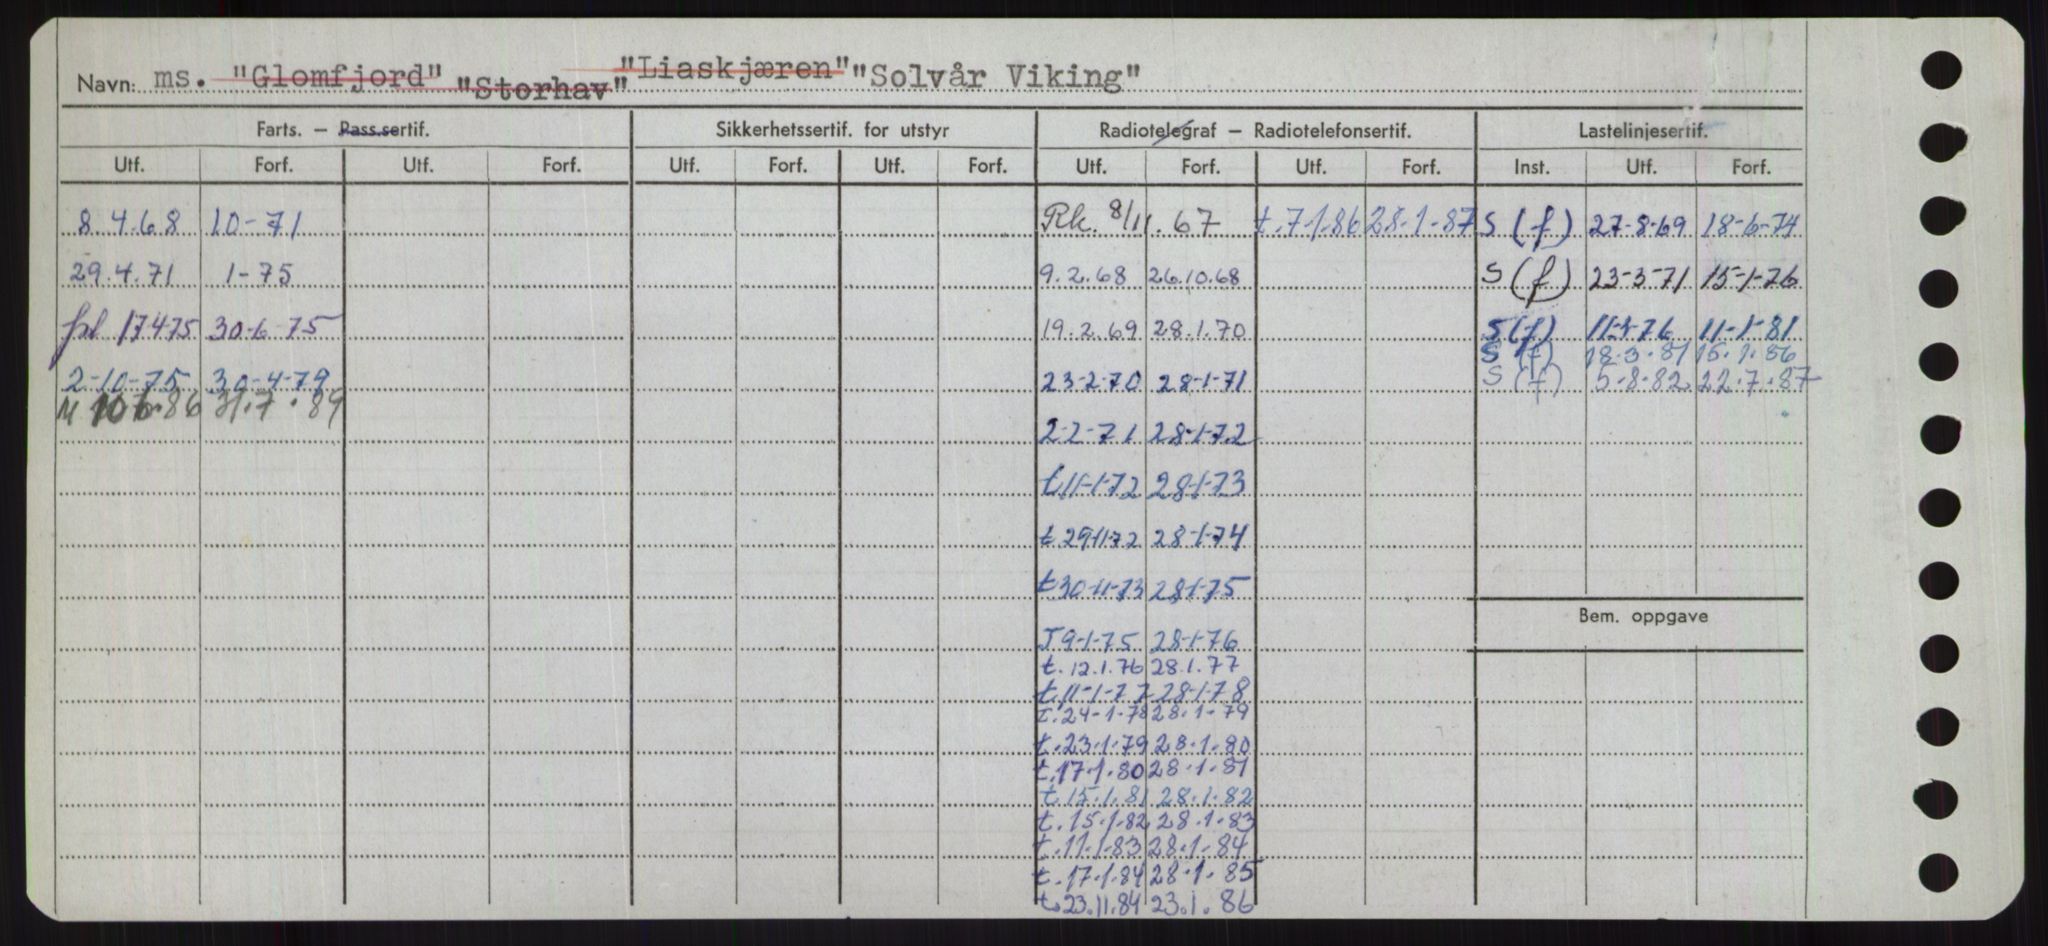 Navn: ms. "Glomfjord" "Storhav" "Liaskjæren" "Solvår Viking"
Farts. – Pass.sertif. Sikkerhetssertif. for utstyr Radiotelegraf – Radiotelefonsertif. Lastelinjesertif.
Utf. Forf. Utf. Forf. Utf. Forf. Utf. Forf. Utf. Forf. Utf. Forf. Inst. Utf. Forf.
8.4.68 10-71 Rk. 8/11.67 t.7.1.86 28.1.87 S (f) 27-8-69 18-6-74
29.4.71 1-75 9.2.68 26.10.68 S (f) 23-3-71 15-1-76
17475 30-6-75 19.2.69 28.1.70 S (f) 11-1-76 11-1-81
S (f) 18.3.81 15.1.86
2-10-75 30-4-79 23-2-70 28-1-71 S (f) 5.8.82 22.7.87
M 10.6.86 31.7.89
2-2-71 28-1-72
t.11-1-72 28-1-73
t.29-11-72 28-1-74
t.30-11-73 28-1-75
Bem. oppgave
T 9-1-75 28-1-76
t. 12.1.76 28.1.77
t.11-1-77 28-1-78
t.24-1-78 28.1-79
t.23.1.79 28.1.80
t.17.1.80 28.1.81
t.15.1.81 28.1.82
t.15.1.82 28.1.83
t.11.1.83 28.1.84
t.17.1.84 28.1.85
t.23.11.84 23.1.86